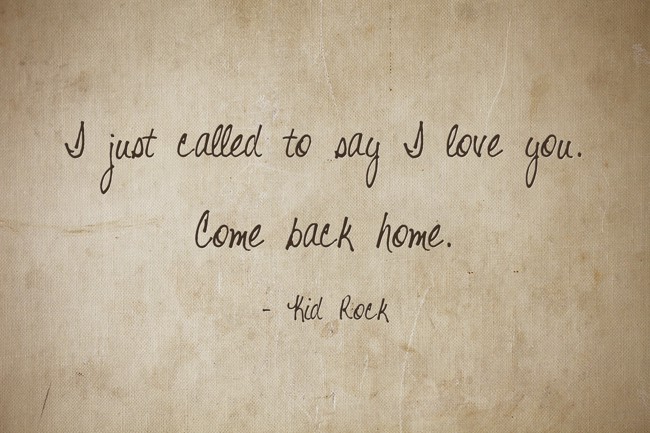 I just called to say I love you.
Come back home.
- Kid Rock